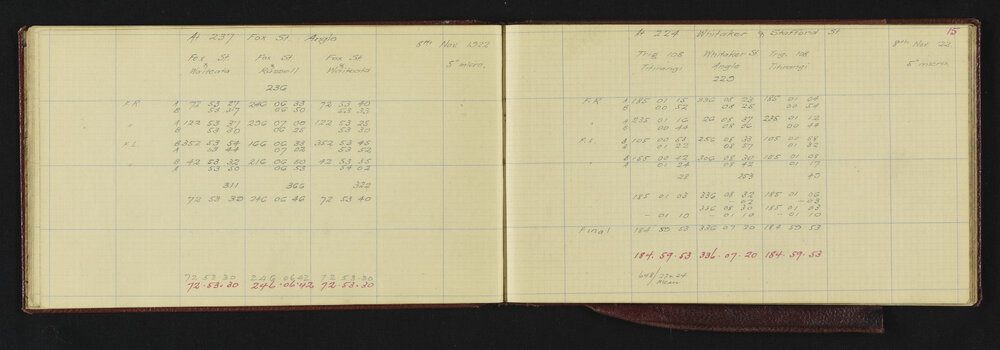 At 237 Fox St. Angle
8th Nov. 1922
Fox St & Waiteata
Fox St & Russell
Fox St & Waiteata
5" micro.
236
F.R A 72 53 27 246 06 33 72 53 40
B 53 37 06 50 53 33
" A 122 53 37 296 07 00 122 53 25
B 53 30 06 25 53 30
F.L B 352 53 54 166 06 38 352 53 45
A 53 44 07 02 53 52
" B 42 53 32 216 06 50 42 53 35
A 53 50 06 53 54 02
311 366 322
72 53 39 246 06 46 72 53 40
72 53 30 246 06 42 72 53 30
72.53.30 246.06.42 72.53.30
15
At 224 Whitaker & Stafford St
8th Nov 22
Trig 108 Titirangi
Whitaker St Angle
Trig. 108 Titirangi
5" micro.
229
F.R A 185 01 15 336 08 23 185 01 04
B 00 52 08 25 00 54
" A 235 01 16 26 08 37 235 01 12
B 00 44 08 26 00 44
F.L B 105 00 53 256 08 33 105 00 58
A 01 22 08 57 01 32
" B 155 00 42 306 08 30 155 01 08
A 01 24 08 42 01 19
28 253 49
185 01 03 336 08 32 185 01 06
02 -03
336 08 30 185 01 03
- 01 10 - 01 10 - 01 10
Final 184 59 53 336 07 20 184 59 53
184.59.53 336.07.20 184.59.53
Mean